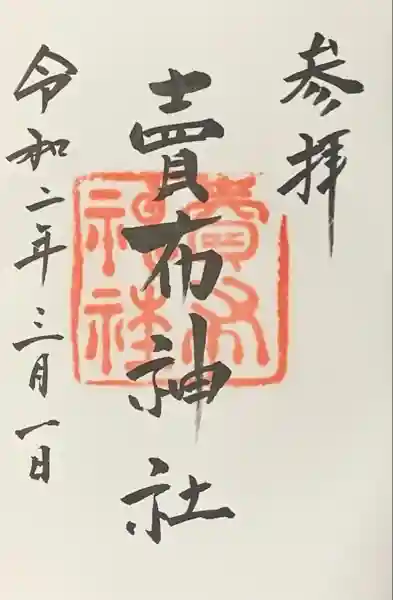 参拝
賣布神社
令和二年三月一日
賣布
神社